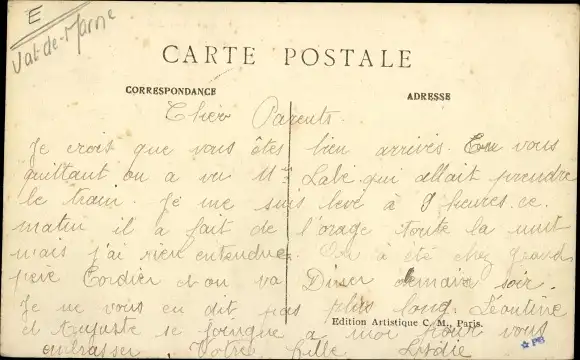 E
Val-de-Marne
CARTE POSTALE
CORRESPONDANCE
ADRESSE
Chers Parents.
Je crois que vous êtes bien arrivés. En vous
quittant on a vu Mr Labé qui allait prendre
le train. Je me suis levé à 9 heures ce
matin il a fait de l'orage toute la nuit
mais j'ai rien entendue. On a été chez grand
père Cordier et on va Diner demain soir.
Je ne vous en dit pas plus long. Léontine
et Auguste se joingne a moi pour vous
embrasser. Votre fille Lydie
Edition Artistique C. M., Paris.